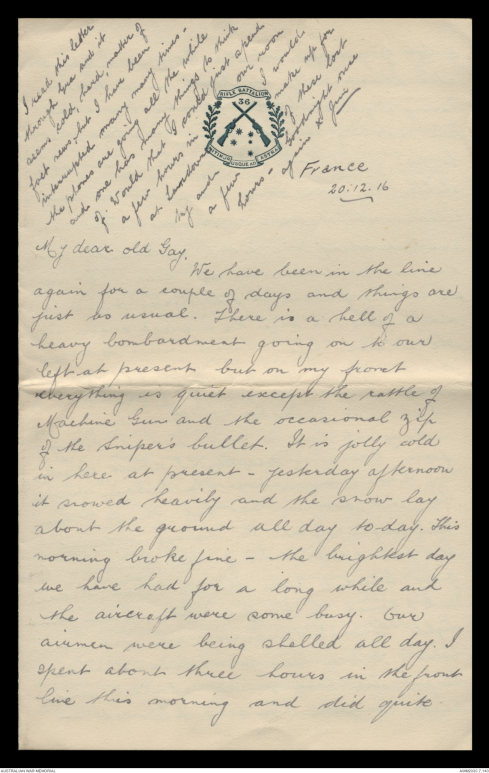 I read this letter
through Gae and it
seems cold, hard, matter of
fact news, but I have been
interrupted many many times -
the phones are going all the while
and one has many things to think
of. Would that I could just spend
a few hours in our room
at I would
try and make up for
a few of these lost
hours - Goodnight once
again x Jim
RIFLE BATTALION
36
ASTRA
France
20.12.16
My dear old Gay,
We have been in the line
again for a couple of days and things are
just as usual. There is a hell of a
heavy bombardment going on to our
left at present but on my front
everything is quiet except the rattle of
Machine Gun and the occasional zip
of the Sniper's bullet. It is jolly cold
in here at present - yesterday afternoon
it snowed heavily and the snow lay
about the ground all day to-day. This
morning broke fine - the brightest day
we have had for a long while and
the aircraft were some busy. Our
airmen were being shelled all day. I
spent about three hours in the front
line this morning and did quite
AUSTRALIAN WAR MEMORIAL